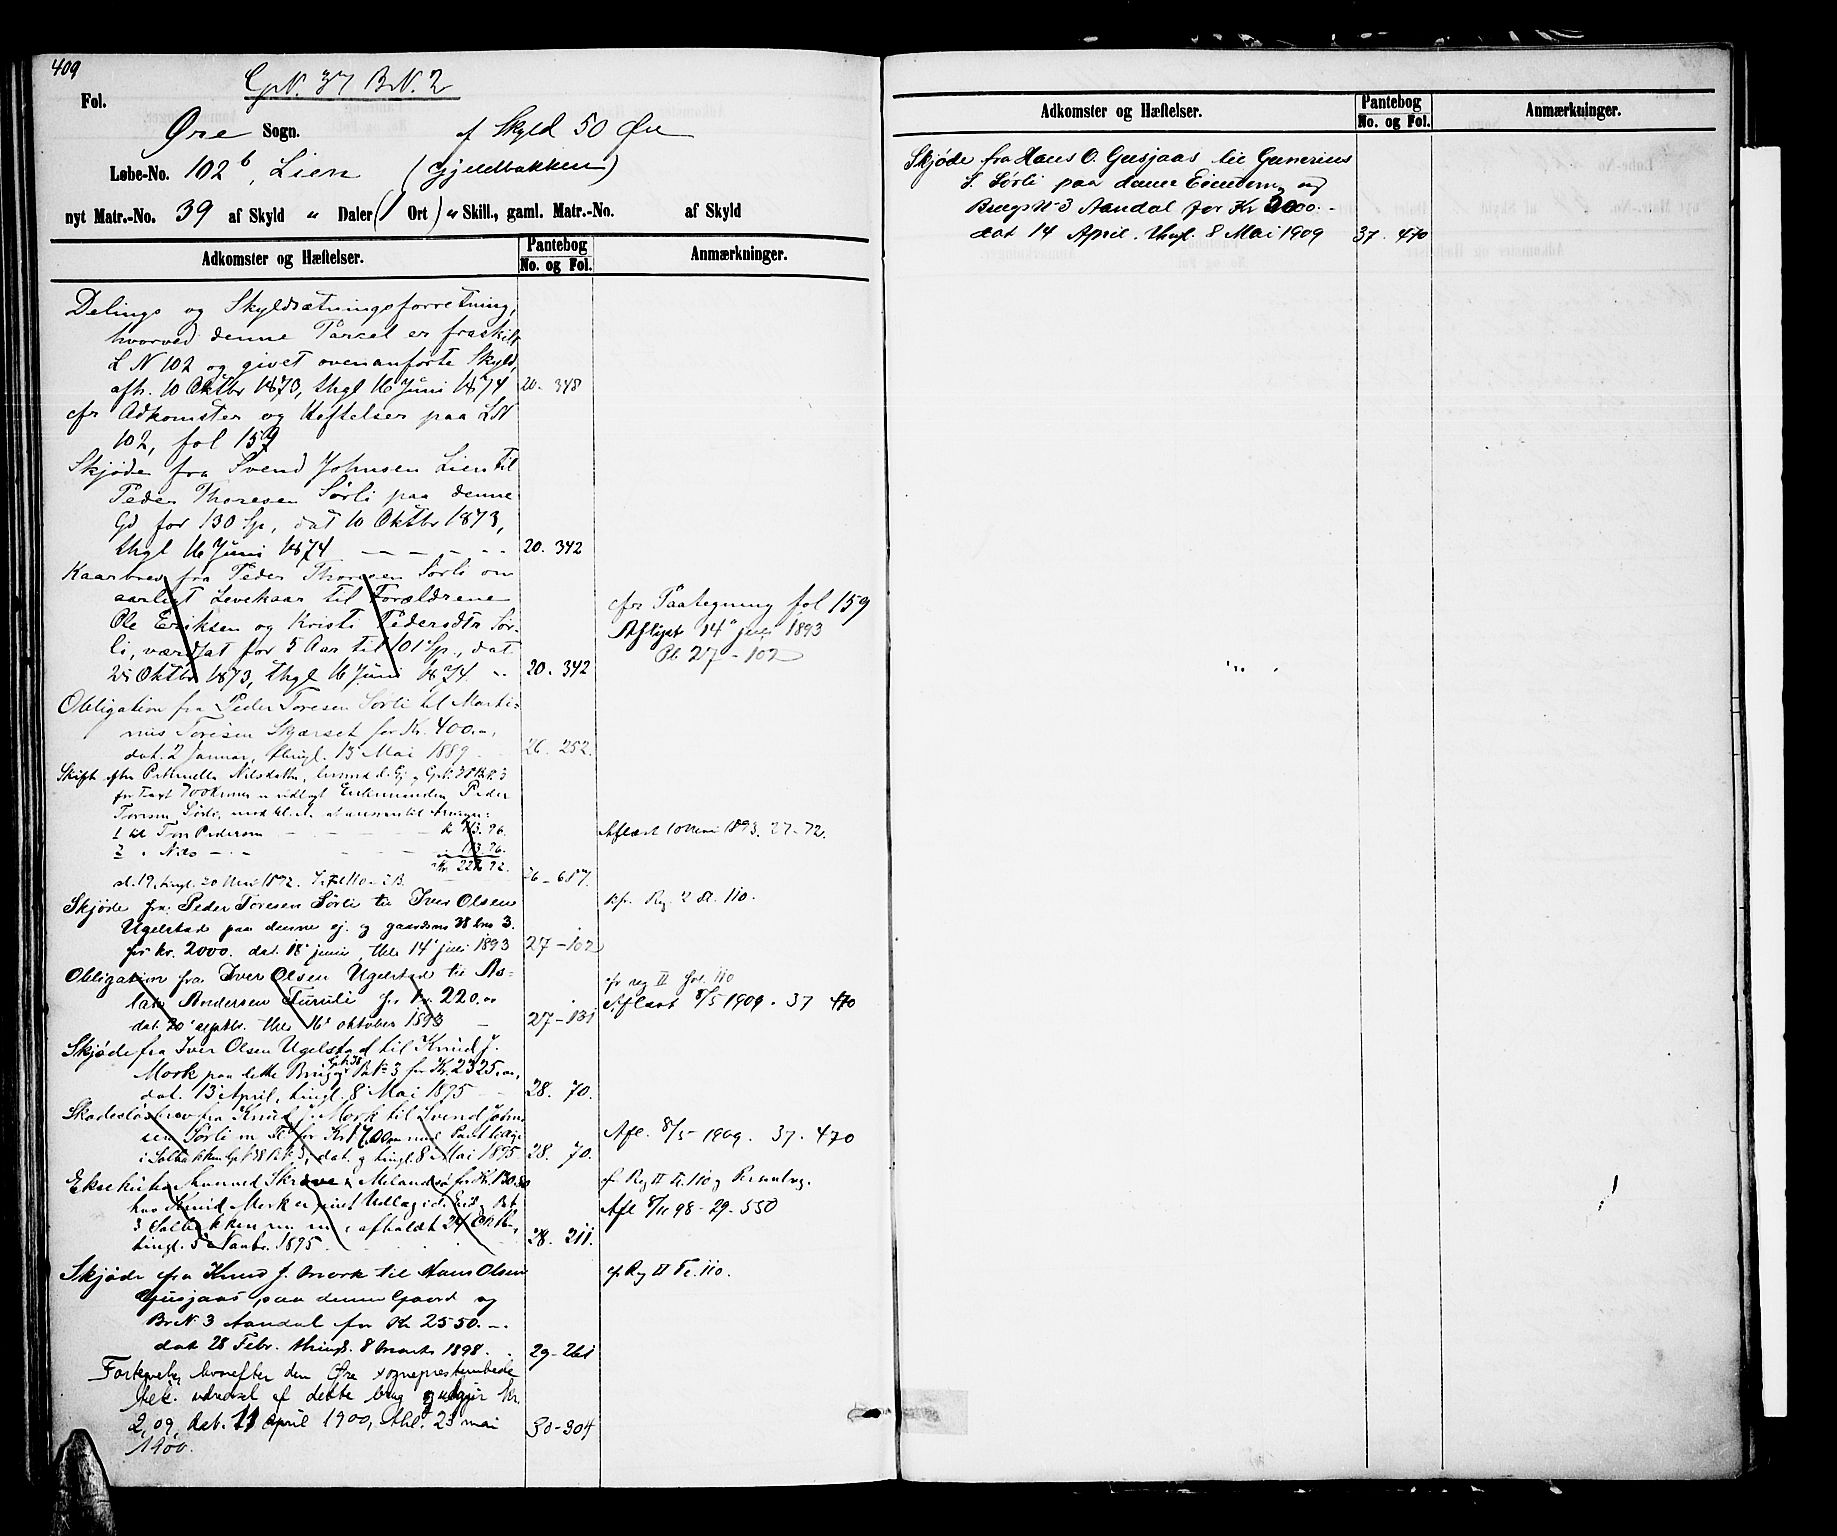 409
GN. 37 BN. 2
Fol.
Øre Sogn. af Skyld 50 Øre
Løbe-No. 102 b, Lien (Gjeldbakken)
nyt Matr.-No. 39 af Skyld " Daler (1 Ort) " Skill., gaml. Matr.-No. af Skyld
Adkomster og Hæftelser. Pantebog No. og Fol. Anmærkninger.
Delings og Skyldsætningsforretning,
hvorved denne Parcel er fraskilt
L N 102 og givet ovenanførte Skyld,
afh. 10 Oktbr 1873, thgl 16 Juni 1874 20. 348
cfr Adkomster og Heftelser paa LN
102, fol 159
Skjøde fra Svend Johnsen Lien til
Peder Thoresen Sørli paa denne
Gd for 130 Sp, dat 10 Oktbr 1873,
thgl 16 Juni 1874 20. 342
Kaarbrev fra Peder Thoresen Sørli om
aarligt Levekaar til Forældrene
Ole Eriksen og Kristi Pedersdtr Sør-
li, værdsat for 5 Aar til 101 Sp., dat
Oktbr 1873, thgl 16 Juni 1874 20. 342
cfr Paategning fol 159
Aflyst 14 juli 1893
Pb 27-102
Obligation fra Peder Toresen Sørli til Marti-
nus Toresen Skjærset for Kr. 400.00,
dat. 2 Januar, thingl. 13 Mai 1889 26. 252.
Skifte efter Nilsdatter,
for Taxt 700 Kroner udlagt Enkemanden Peder
Toresen Sørli,
1 til Tor Pedersen Kr 113.96.
2 " Nils 113.96.
1892. 26-687.
Aflæst 10 1893. 27-72.
Skjøde fra Peder Toresen Sørli til Iver Olsen
Ugelstad paa denne ej. og gaardsno 38 bno 3.
for kr. 2000. dat. 18 juni, thgl 14 juli 1893 27-102
kfr. Reg. 2 fl. 110.
Obligation fra Iver Olsen Ugelstad til As-
lak Andersen Furuli for kr. 220.00
dat. 20 septbr. thgl 16 oktober 1893 27-131
cfr reg II fol. 110
Aflæst 8/5 1909. 37 470
Skjøde fra Iver Olsen Ugelstad til Knud J.
Mork paa dette Brug og GN. 38 BN 3 for Kr. 2325.00,
dat. 13 April, tingl. 8 Mai 1895 28. 70.
Skadesløsbrev fra Knud J. Mork til Svend John-
sen Sørli
i Solbakken GN 38 BN 3, dat. og tingl. 8 Mai 1895 28. 70.
Afl. 8/5 1909. 37. 470
Exekution hvorved
hos Knud Mork er givet Udlæg i d. Eiend. BN.
3 Solbakken afholdt 24
tingl. 5 Novbr. 1895. 28. 211.
cf Reg II fl. 110 og
Afl 8/11 98-29-550
Skjøde fra Knud J. Mork til Hans Olsen
Gusjaas paa denne Gaard og
BrN 3 Aandal for Kr 2550.
dat 28 Febr. thingl. 8 Marts 1898. 29-261
cfr Reg II Fl. 110.
hvorefter den Øre sogneprestembede
af dette brug udgjør Kr.
2,09, dat. 11 April 1900, thl. 23 mai
1900. 30-304
Adkomster og Hæftelser. Pantebog No. og Fol. Anmærkninger.
Skjøde fra Hans O. Gusjaas til Gunerius
S. Sørli paa denne Eiendom og
Brugs N 3 Aandal for Kr 2000.
dat 14 April. thgl. 8 Mai 1909 37. 470